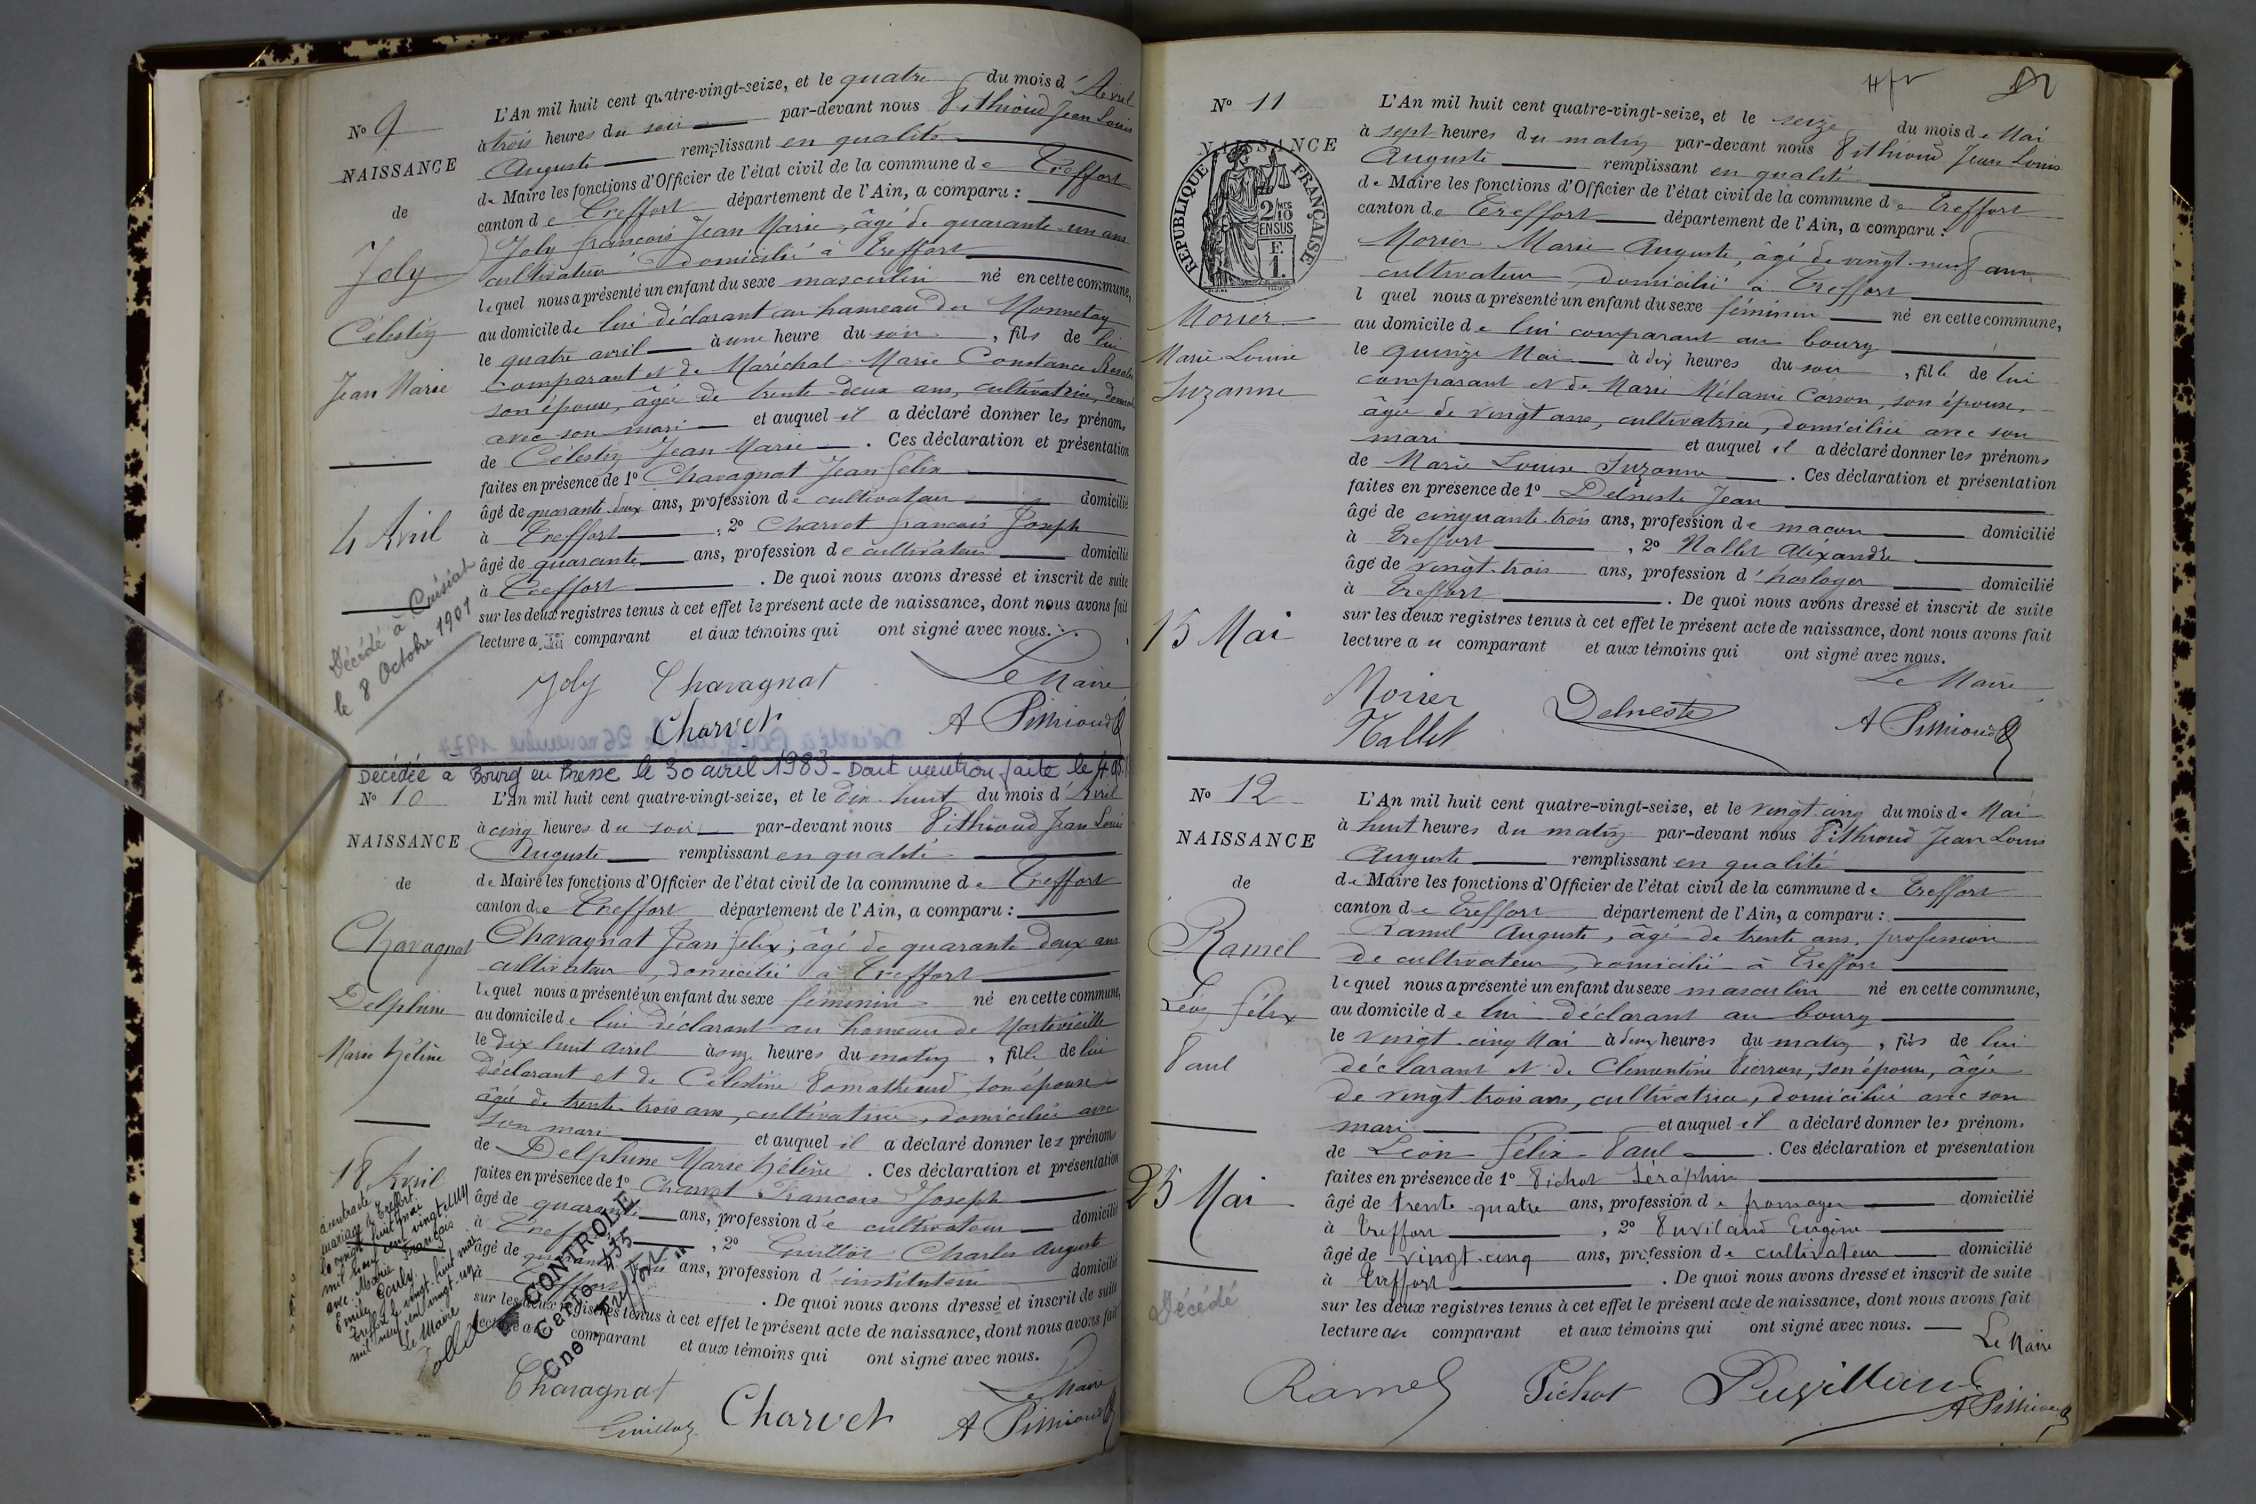 N° 9
NAISSANCE
de
Joly
Célestin
Jean Marie
4 Avril
Décédé à Cuisiat
le 8 Octobre 1901
L'An mil huit cent quatre-vingt-seize, et le quatre du mois d'Avril
à trois heures du soir par-devant nous Pithioud Jean Louis
Auguste remplissant en qualité
de Maire les fonctions d'Officier de l'état civil de la commune de Treffort
canton de Treffort département de l'Ain, a comparu :
Joly François Jean Marie, âgé de quarante-un ans
cultivateur domicilié à Treffort
lequel nous a présenté un enfant du sexe masculin né en cette commune,
au domicile de lui déclarant au hameau du Monnetay
le quatre avril à une heure du soir, fils de lui
comparant et de Maréchal Marie Constance
son épouse, âgée de trente-deux ans, cultivatrice,
avec son mari et auquel il a déclaré donner les prénoms
de Célestin Jean Marie. Ces déclaration et présentation
faites en présence de 1° Chavagnat Jean Félix
âgé de quarante-deux ans, profession de cultivateur domicilié
à Treffort, 2° Charvet François Joseph
âgé de quarante ans, profession de cultivateur domicilié
à Treffort. De quoi nous avons dressé et inscrit de suite
sur les deux registres tenus à cet effet le présent acte de naissance, dont nous avons fait
lecture au comparant et aux témoins qui ont signé avec nous.
Joly Chavagnat Le Maire
Charvet A Pithioud
Décédée à Bourg en Bresse le 30 avril 1983 - Dont mention faite le
N° 10
NAISSANCE
de
Chavagnat
Delphine
Marie Hélène
18 Avril
a contracté
mariage à Treffort
le vingt huit mai
mil neuf cent vingt un
avec Marie François
Emile Pauly
Treffort le vingt huit mai
mil neuf cent vingt un
Le Maire
L'An mil huit cent quatre-vingt-seize, et le dix-huit du mois d'Avril
à cinq heures du soir par-devant nous Pithioud Jean Louis
Auguste remplissant en qualité
de Maire les fonctions d'Officier de l'état civil de la commune de Treffort
canton de Treffort département de l'Ain, a comparu :
Chavagnat Jean Félix, âgé de quarante deux ans
cultivateur, domicilié à Treffort
lequel nous a présenté un enfant du sexe féminin né en cette commune,
au domicile de lui déclarant au hameau de Montevieille
le dix huit avril à onze heures du matin, fille de lui
déclarant et de Célestine Pomathioud son épouse
âgée de trente-trois ans, cultivatrice, domiciliée avec
son mari et auquel il a déclaré donner les prénoms
de Delphine Marie Hélène. Ces déclaration et présentation
faites en présence de 1° Charvet François Joseph
âgé de quarante ans, profession de cultivateur domicilié
à Treffort, 2° Guilloz Charles Auguste
âgé de quarante ans, profession d'instituteur domicilié
à Treffort. De quoi nous avons dressé et inscrit de suite
sur les deux registres tenus à cet effet le présent acte de naissance, dont nous avons fait
lecture au comparant et aux témoins qui ont signé avec nous.
CONTROLE
Carto 435
Cne Treffort
Chavagnat Le Maire
Guilloz Charvet A Pithioud
N° 11
NAISSANCE
RÉPUBLIQUE FRANÇAISE
2/10
EN SUS
Morier
Marie Louise
Suzanne
15 Mai
L'An mil huit cent quatre-vingt-seize, et le seize du mois de Mai
à sept heures du matin par-devant nous Pithioud Jean Louis
Auguste remplissant en qualité
de Maire les fonctions d'Officier de l'état civil de la commune de Treffort
canton de Treffort département de l'Ain, a comparu :
Morier Marie Auguste, âgé de vingt-neuf ans
cultivateur, domicilié à Treffort
l quel nous a présenté un enfant du sexe féminin né en cette commune,
au domicile de lui comparant au bourg
le quinze Mai à dix heures du soir, fille de lui
comparant et de Marie Mélanie Corron, son épouse,
âgée de vingt ans, cultivatrice, domiciliée avec son
mari et auquel il a déclaré donner les prénoms
de Marie Louise Suzanne. Ces déclaration et présentation
faites en présence de 1° Delneste Jean
âgé de cinquante-trois ans, profession de maçon domicilié
à Treffort, 2° Nallet Alexandre
âgé de vingt-trois ans, profession d'horloger domicilié
à Treffort. De quoi nous avons dressé et inscrit de suite
sur les deux registres tenus à cet effet le présent acte de naissance, dont nous avons fait
lecture au comparant et aux témoins qui ont signé avec nous.
Le Maire
Morier Delneste A Pithioud
Nallet
N° 12
NAISSANCE
de
Ramel
Léon Félix
Paul
25 Mai
Décédé
L'An mil huit cent quatre-vingt-seize, et le vingt cinq du mois de Mai
à huit heures du matin par-devant nous Pithioud Jean Louis
Auguste remplissant en qualité
de Maire les fonctions d'Officier de l'état civil de la commune de Treffort
canton de Treffort département de l'Ain, a comparu :
Ramel Auguste, âgé de trente ans, profession
de cultivateur, domicilié à Treffort
lequel nous a présenté un enfant du sexe masculin né en cette commune,
au domicile de lui déclarant au bourg
le vingt-cinq Mai à deux heures du matin, fils de lui
déclarant et de Clémentine Pierron, son épouse, âgée
de vingt-trois ans, cultivatrice, domiciliée avec son
mari et auquel il a déclaré donner les prénoms
de Léon Félix Paul. Ces déclaration et présentation
faites en présence de 1° Pichot Séraphin
âgé de trente-quatre ans, profession de fromager domicilié
à Treffort, 2° Puvilland Eugène
âgé de vingt-cinq ans, profession de cultivateur domicilié
à Treffort. De quoi nous avons dressé et inscrit de suite
sur les deux registres tenus à cet effet le présent acte de naissance, dont nous avons fait
lecture au comparant et aux témoins qui ont signé avec nous.
Le Maire
Ramel Pichot Puvilland
A Pithioud